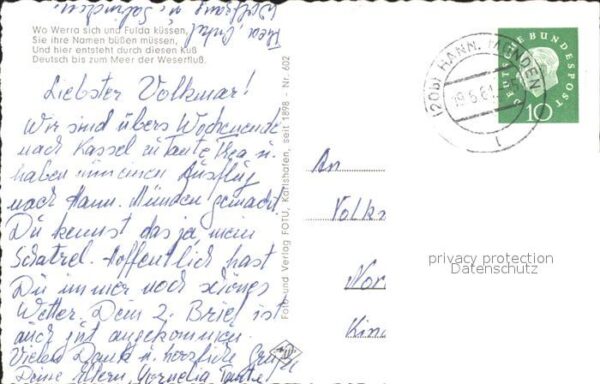 Wo Werra sich und Fulda küssen,
Sie ihre Namen büßen müssen,
Und hier entsteht durch diesen Kuß
Deutsch bis zum Meer der Weserfluß.
Liebster Volkmar!
Wir sind übers Wochenende
nach Kassel zu Tante Thea u.
haben nun einen Ausflug
nach Hann. Münden gemacht.
Du kennst das ja mein
Schatzel. Hoffentlich hast
Du immer noch schönes
Wetter. Dein 2. Brief ist
auch gut angekommen.
Vielen Dank u. herzliche Grüße
Deine Eltern, Cornelia, Tante
Thea, Onkel
Foto-und Verlag FOTU, Karlshafen, seit 1898 - Nr. 602
(20b) HANN. MÜNDEN
19.6.61
1
DEUTSCHE BUNDESPOST
10
An
Volk
Nor
Kin
privacy protection
Datenschutz